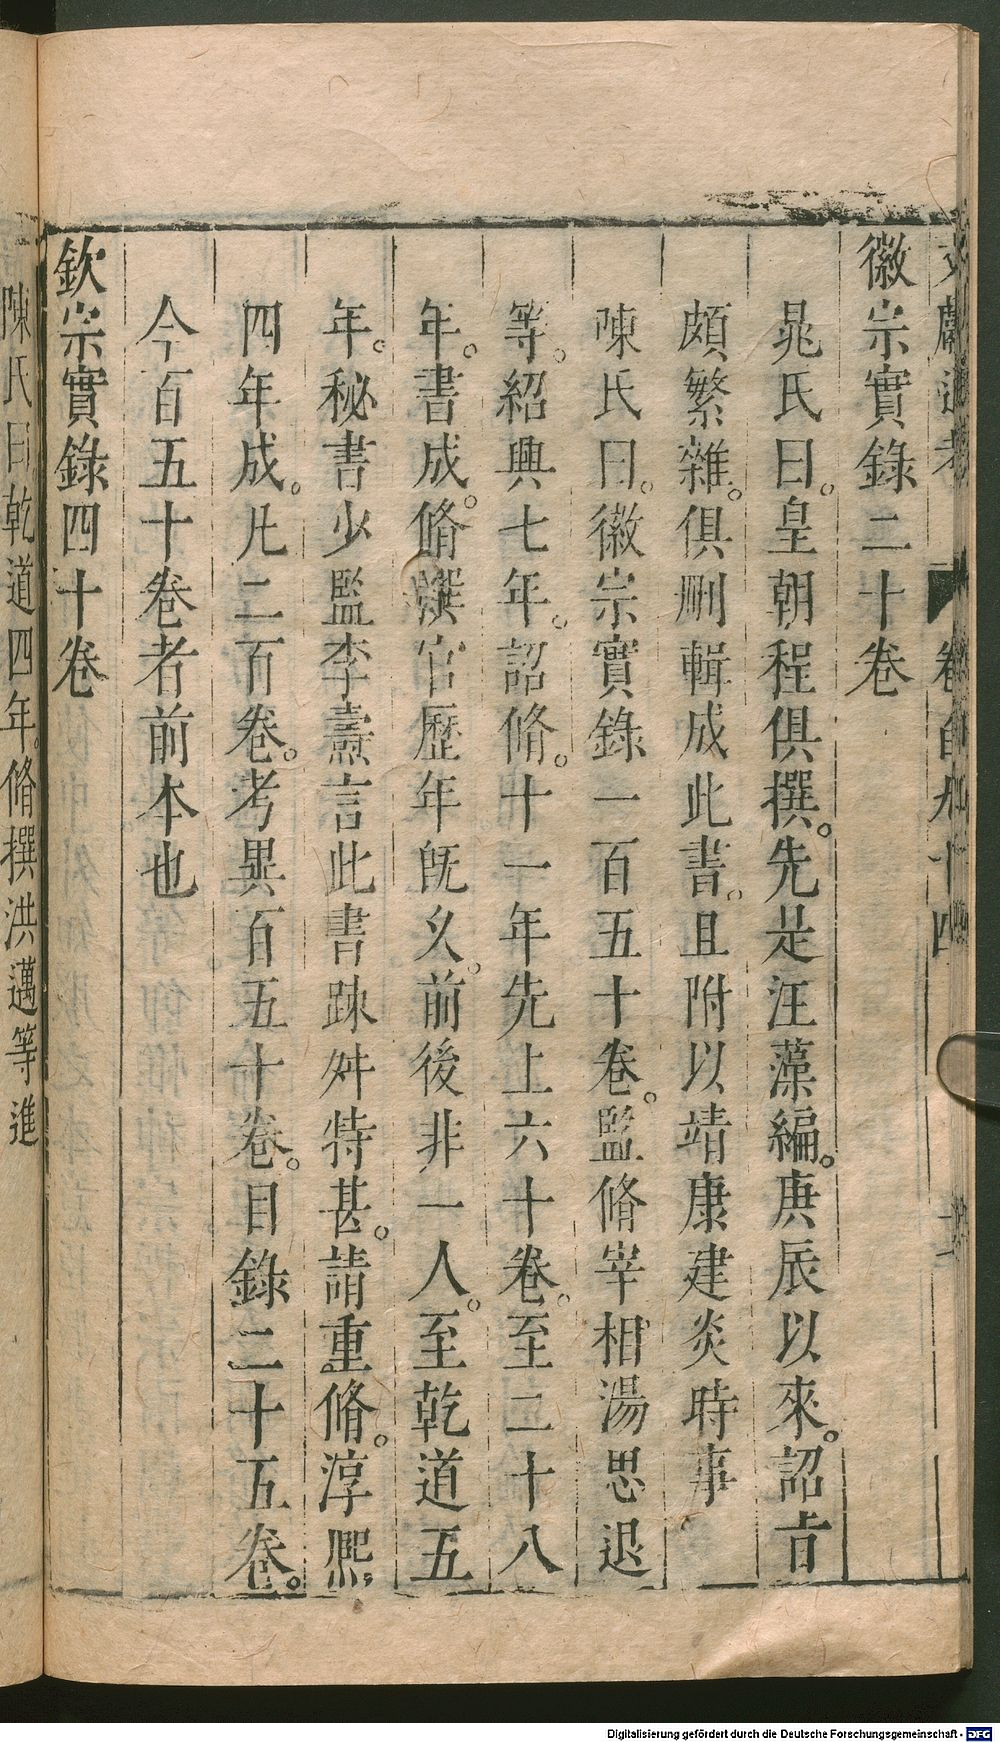 文獻通考 卷百九十四
徽宗實錄二十卷
晁氏曰。皇朝程俱撰。先是汪藻編。庚辰以來。詔旨
頗繁雜。俱刪輯成此書。且附以靖康建炎時事
陳氏曰。徽宗實錄一百五十卷。監脩宰相湯思退
等。紹興七年。詔脩。十一年先上六十卷。至二十八
年。書成。脩撰官歷年旣久。前後非一人。至乾道五
年。秘書少監李燾言此書踈舛特甚。請重脩。淳熙
四年成。凡二百卷。考異百五十卷。目錄二十五卷。
今百五十卷者前本也
欽宗實錄四十卷
陳氏曰乾道四年。脩撰洪邁等進
Digitalisierung gefördert durch die Deutsche Forschungsgemeinschaft - DFG